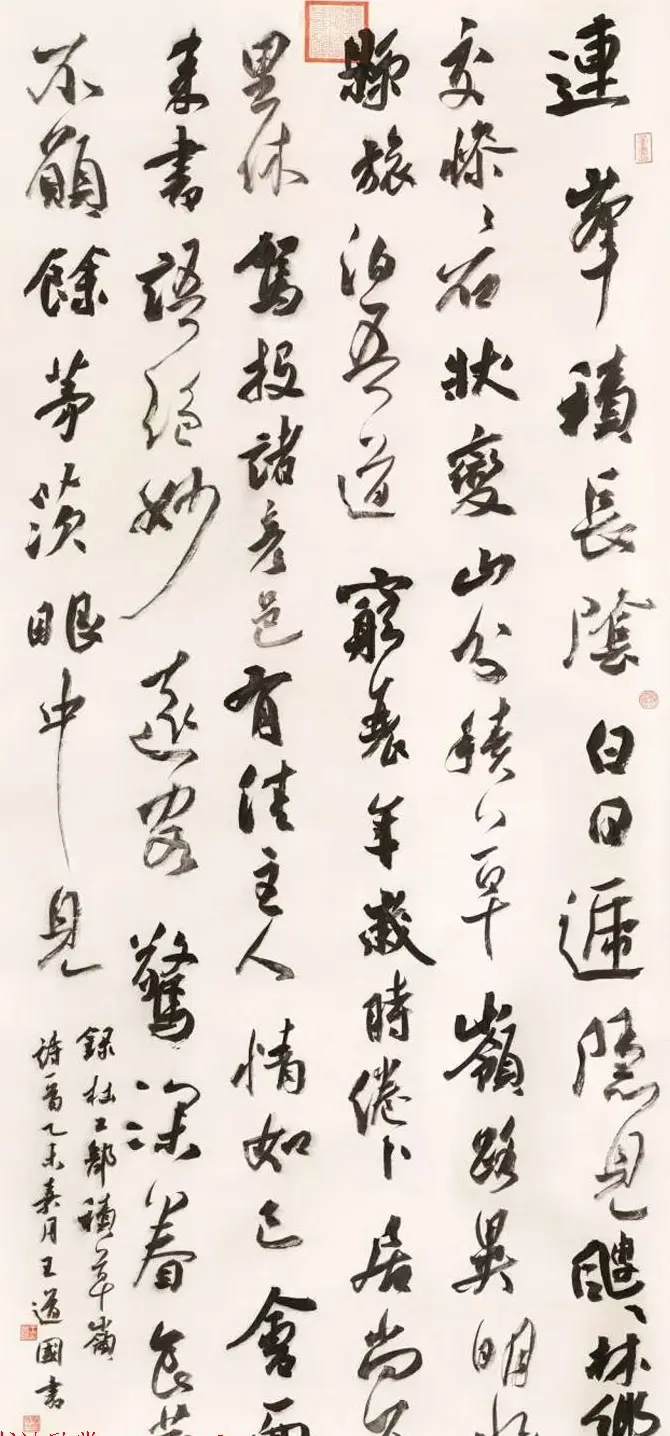 連峯積長陰白日遞隱見颼〻林
交慘〻石狀變山分積草嶺路異明
縣旅泊吾道窮衰年歲時倦卜居尚
里休駕投諸彥邑有佳主人情如已會面
來書語絕妙遠客驚深眷食
不願餘茅茨眼中見
錄杜工部積草嶺
詩一首乙未月王道國書